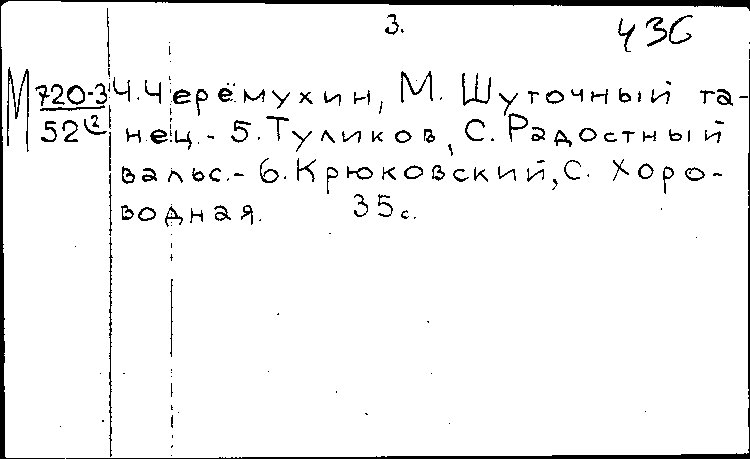 3.
436
М 720-3 4. Черёмухин, М. Шуточный та-
52(2 нец.- 5. Туликов, С. Радостный
вальс.- 6. Крюковский, С. Хоро-
водная. 35 с.